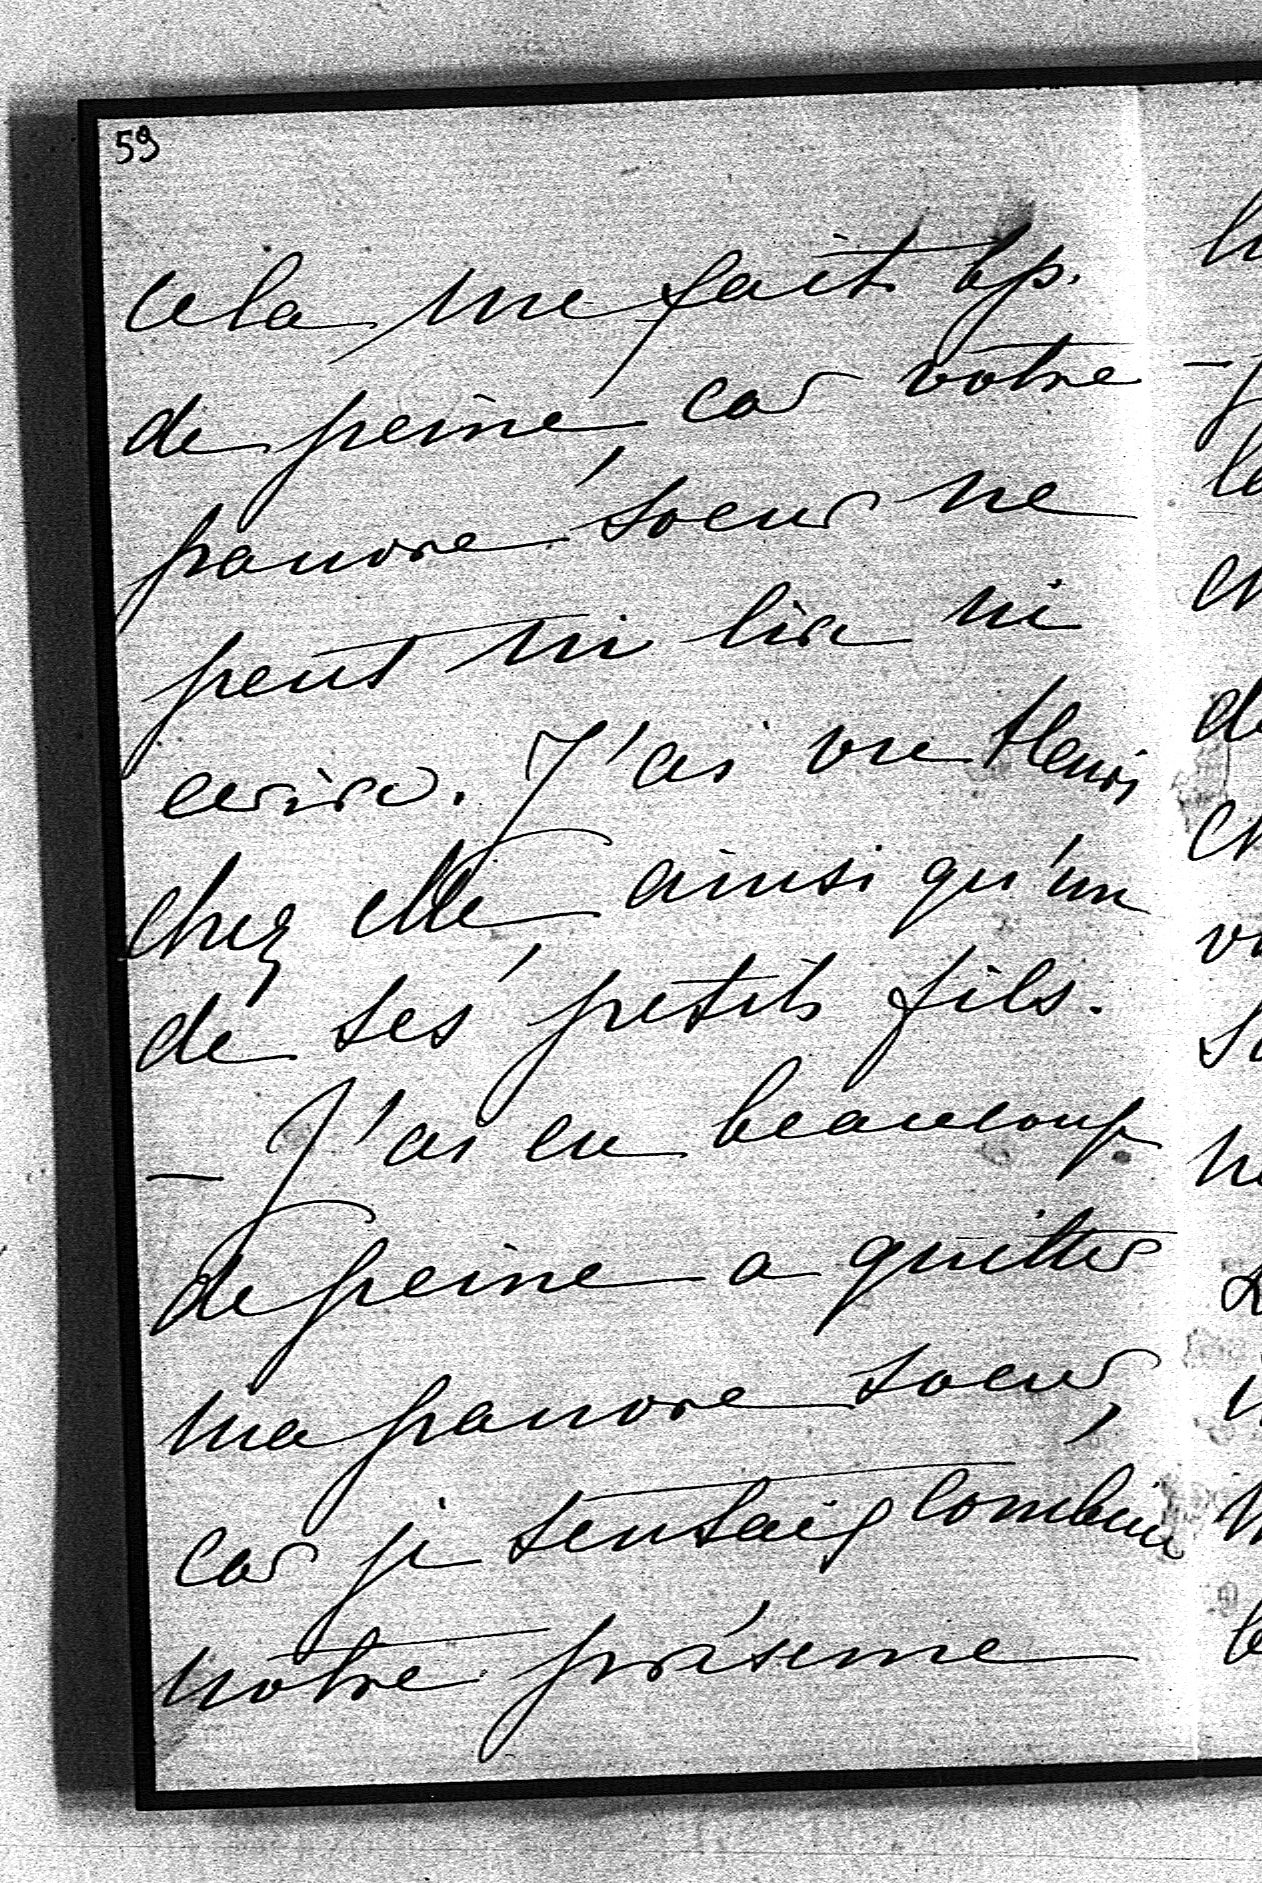 59
cela me fait bp.
de peine, car votre
pauvre soeur ne
peut ni lire ni
ecrire. J'ai vu Henri
chez elle ainsi qu'un
de ses petits fils.
— J'ai eu beaucoup
de peine a quitter
ma pauvre soeur,
car je sentais combien
notre présence